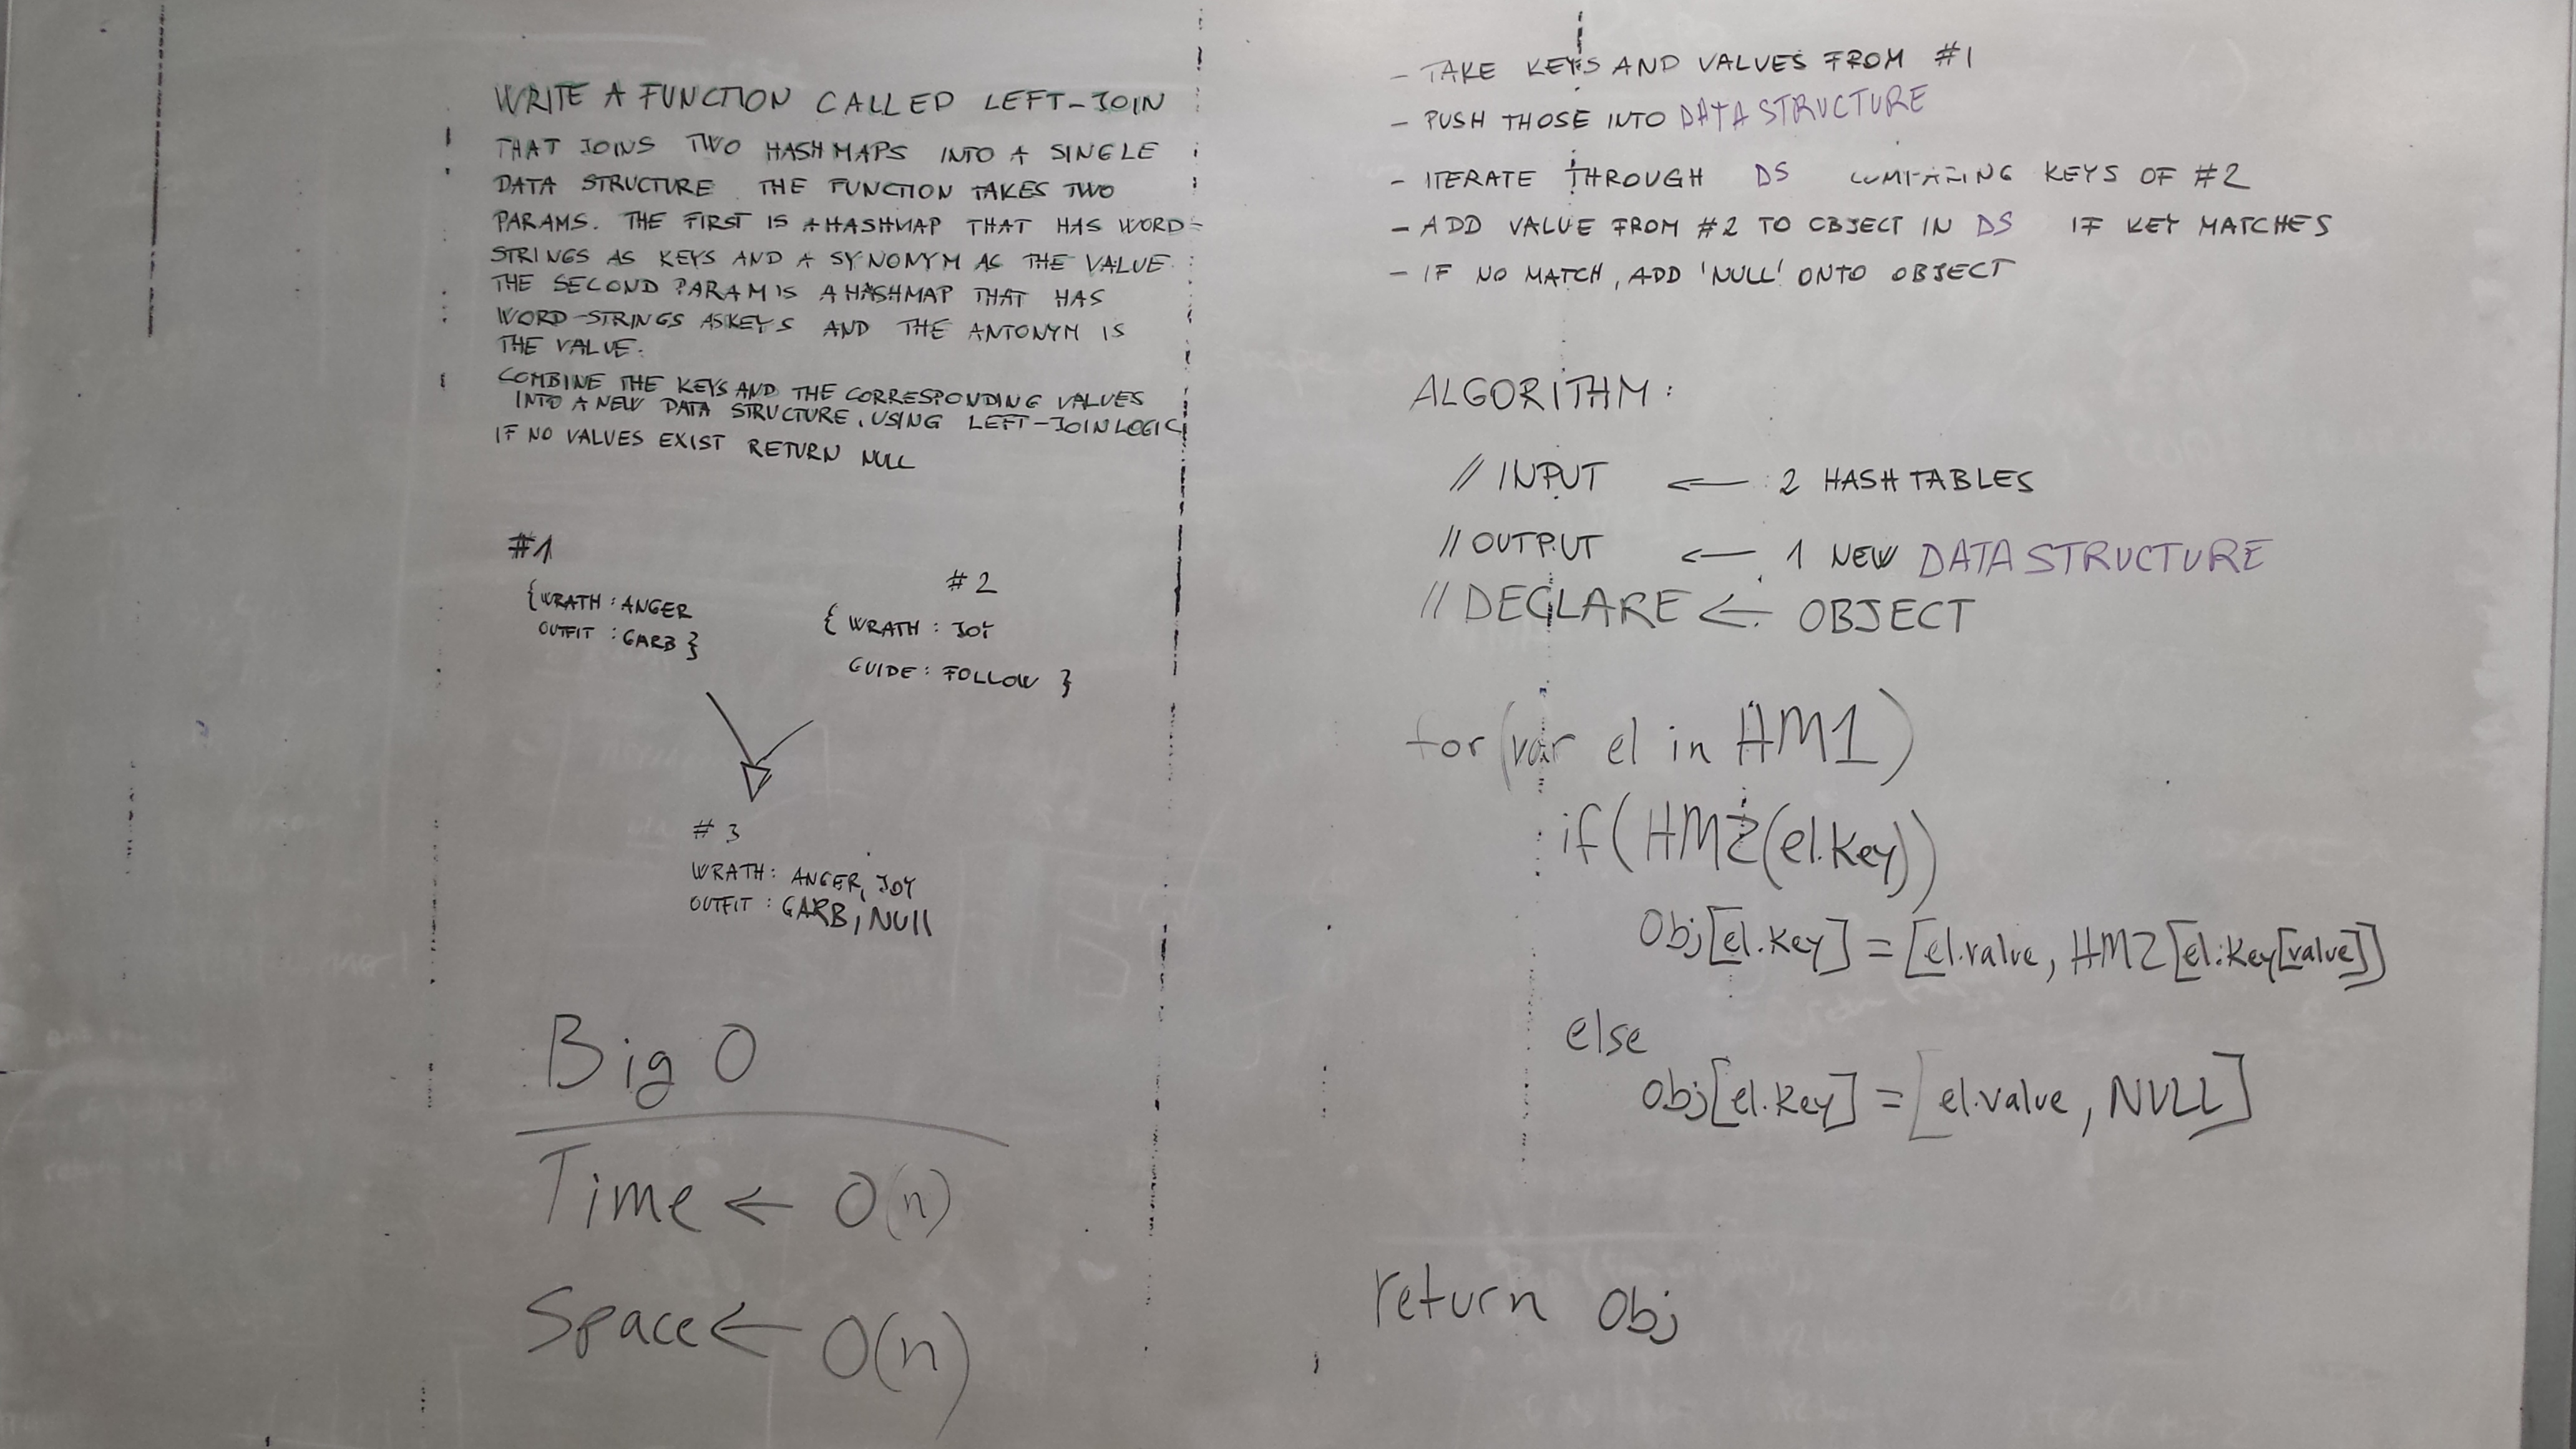 WRITE A FUNCTION CALLED LEFT-JOIN
THAT JOINS TWO HASHMAPS INTO A SINGLE
DATA STRUCTURE THE FUNCTION TAKES TWO
PARAMS. THE FIRST IS A HASHMAP THAT HAS WORD-
STRINGS AS KEYS AND A SYNONYM AS THE VALUE
THE SECOND PARAM IS A HASHMAP THAT HAS
WORD-STRINGS AS KEYS AND THE ANTONYM IS
THE VALUE.
COMBINE THE KEYS AND THE CORRESPONDING VALUES
INTO A NEW DATA STRUCTURE, USING LEFT-JOIN LOGIC
IF NO VALUES EXIST RETURN NULL
#1
{WRATH : ANGER
OUTFIT : GARB }
#2
{ WRATH : JOY
GUIDE : FOLLOW }
#3
WRATH : ANGER, JOY
OUTFIT : GARB, NULL
Big O
Time ← O(n)
Space ← O(n)
- TAKE KEYS AND VALUES FROM #1
- PUSH THOSE INTO DATA STRUCTURE
- ITERATE THROUGH DS COMPARING KEYS OF #2
- ADD VALUE FROM #2 TO OBJECT IN DS IF KEY MATCHES
- IF NO MATCH, ADD 'NULL' ONTO OBJECT
ALGORITHM :
// INPUT ← 2 HASH TABLES
// OUTPUT ← 1 NEW DATA STRUCTURE
// DECLARE ← OBJECT
for (var el in HM1)
if (HM2(el.key))
Obj[el.key] = [el.value, HM2[el.key[value]]
else
obj[el.key] = [el.value, NULL]
return Obj